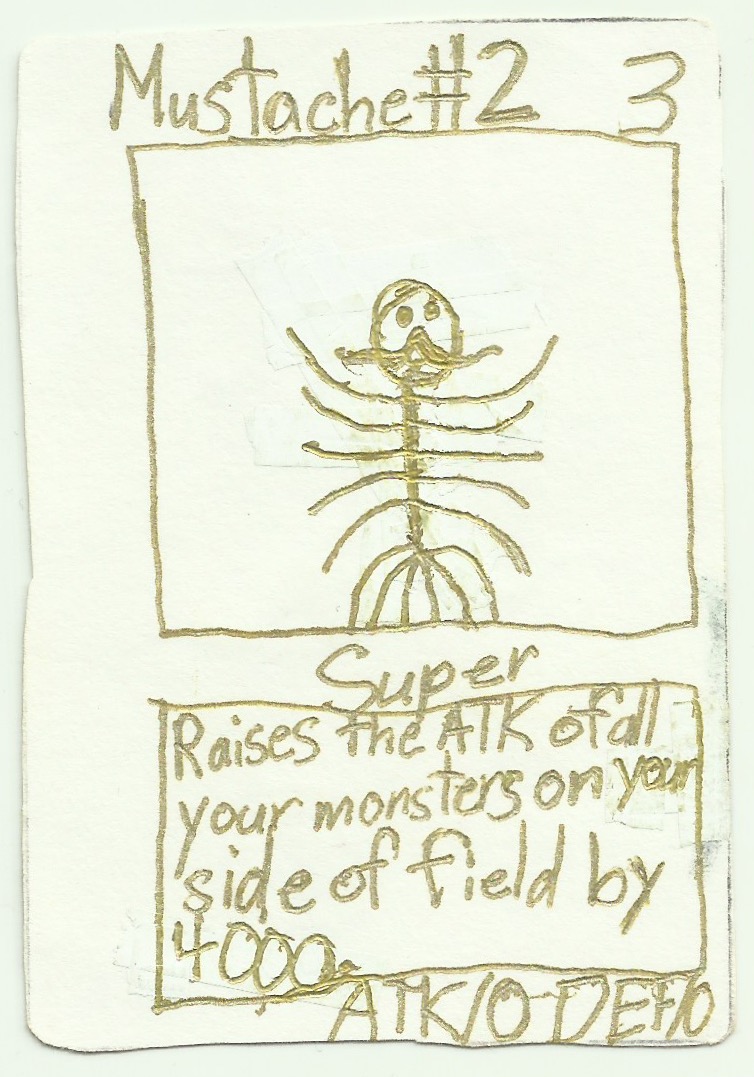 Mustache #2 3
Super
Raises the ATK of all
your monsters on your
side of field by
4000.
ATK/0 DEF/0